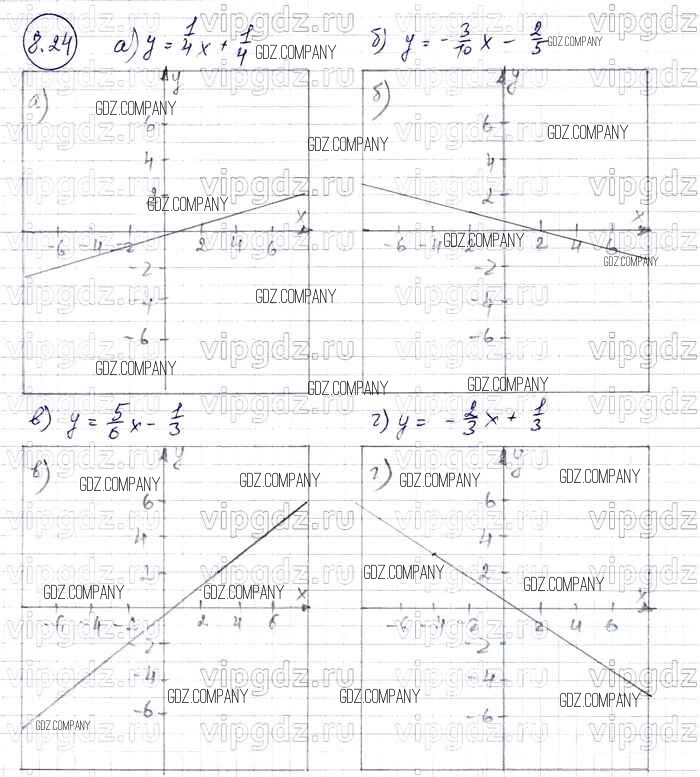 8.24 а) y = 1/4 x + 1/4 б) y = - 3/10 x - 2/5
GDZ.COMPANY GDZ.COMPANY
vipgdz.ru vipgdz.ru vipgdz.ru vipgdz.ru
а) y б) y
GDZ.COMPANY
6 6
GDZ.COMPANY
GDZ.COMPANY
vipgdz.ru vipgdz.ru vipgdz.ru vipgdz.ru
4 4
2 2
GDZ.COMPANY
x x
-6 -4 -2 2 4 6 -6 -4 2 4 6
GDZ.COMPANY
GDZ.COMPANY
-2 -2
vipgdz.ru vipgdz.ru vipgdz.ru vipgdz.ru
GDZ.COMPANY
-4 -4
-6 -6
GDZ.COMPANY
GDZ.COMPANY GDZ.COMPANY
в) y = 5/6 x - 1/3 г) y = - 2/3 x + 1/3
в) y г) y
GDZ.COMPANY GDZ.COMPANY GDZ.COMPANY GDZ.COMPANY
6 6
vipgdz.ru vipgdz.ru vipgdz.ru vipgdz.ru
4 4
2 2
GDZ.COMPANY GDZ.COMPANY
GDZ.COMPANY GDZ.COMPANY
x x
-6 -4 -2 2 4 6 -6 -4 -2 2 4 6
-2 -2
-4 -4
GDZ.COMPANY GDZ.COMPANY GDZ.COMPANY
-6 -6
GDZ.COMPANY
vipgdz.ru vipgdz.ru vipgdz.ru vipgdz.ru